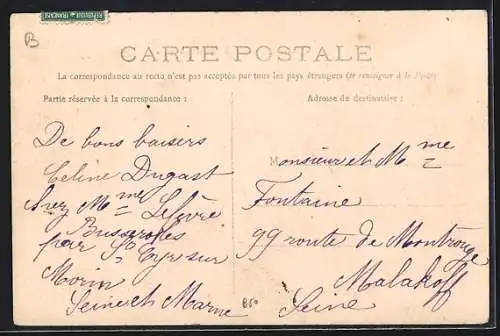 B
RÉPUBLIQUE FRANÇAISE
CARTE POSTALE
La correspondance au recto n'est pas acceptée par tous les pays étrangers (se renseigner à la Poste)
Partie réservée à la correspondance :
De bons baisers
Celine Dugast
chez Mme Lefèvre
Busserolles
par St Cyr sur
Morin
Seine et Marne
Adresse du destinataire :
Monsieur et Mme
Fontaine
99 route de Montrouge
Malakoff
Seine